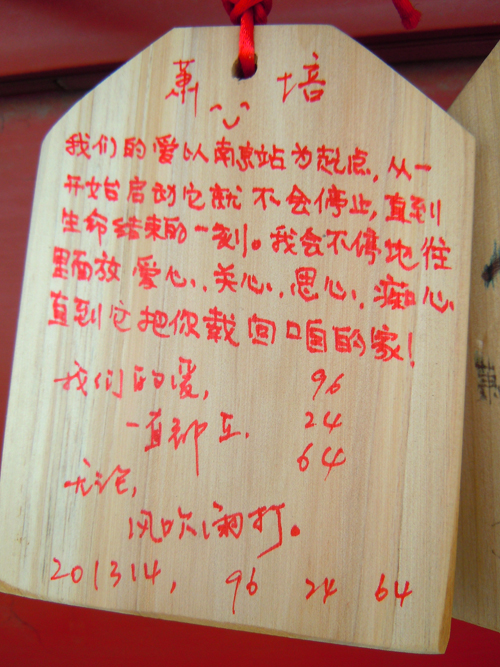 萧 培
我们的爱以南京站为起点,从一
开始启动它就不会停止,直到
生命结束的一刻。我会不停地往
里面放爱心、关心、思心、痴心
直到它把你载回咱的家!
我们的爱, 96
一直都在. 24
无论, 64
风吹雨打。
201314, 96 24 64